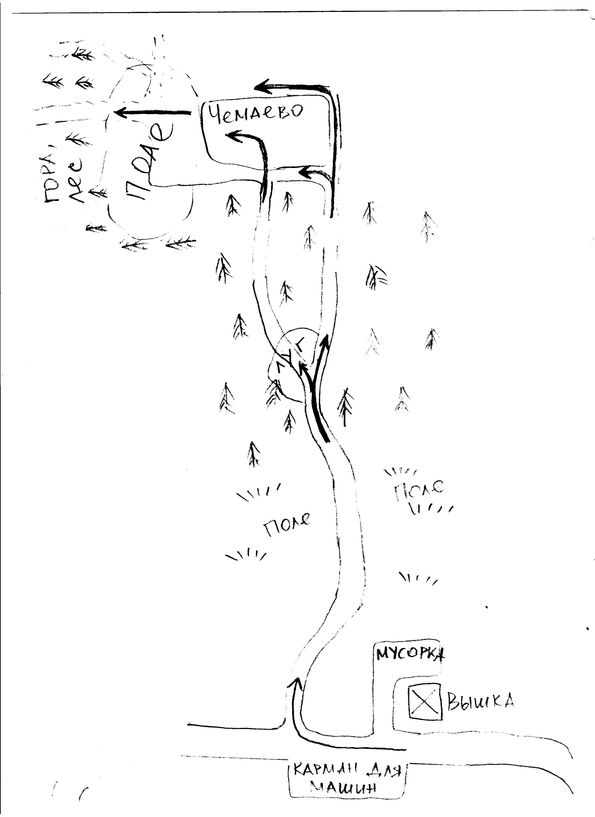 Чемаево
ПОЛЕ
ГОРА,
ЛЕС
Поле
Поле
МУСОРКА
ВЫШКА
КАРМАН ДЛЯ
МАШИН